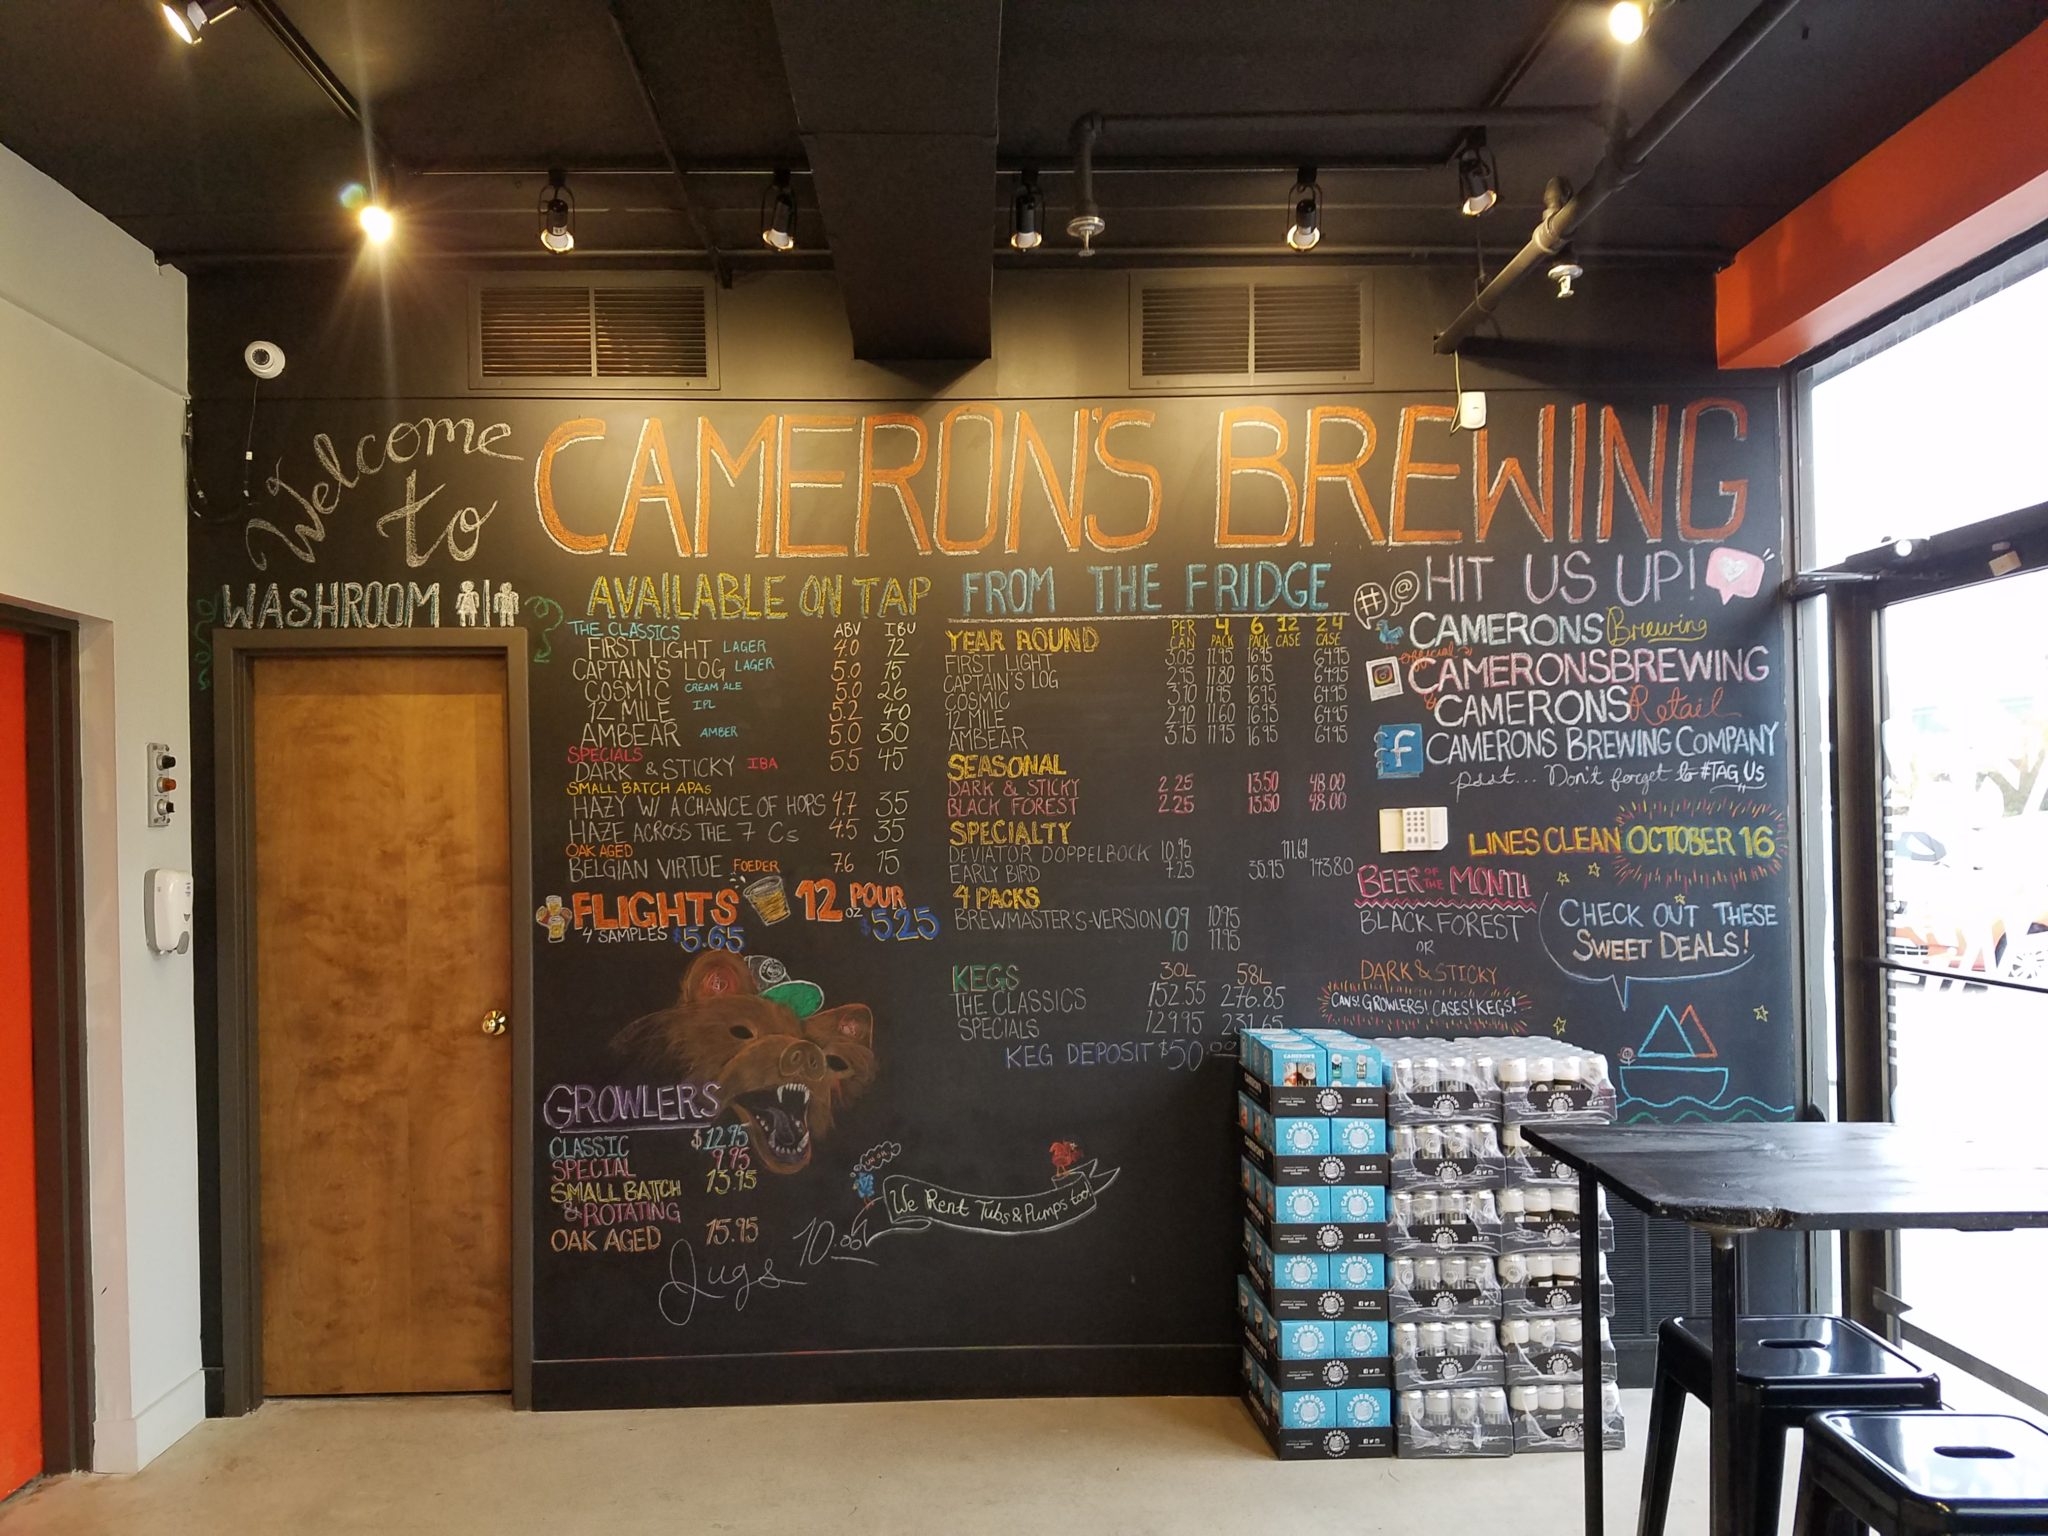 Welcome
to
CAMERON'S BREWING
WASHROOM
AVAILABLE ON TAP
THE CLASSICS ABV IBU
FIRST LIGHT LAGER 4.0 12
CAPTAIN'S LOG LAGER 5.0 15
COSMIC CREAM ALE 5.0 26
12 MILE IPL 5.2 40
AMBEAR AMBER 5.0 30
SPECIALS
DARK & STICKY IBA 5.5 45
SMALL BATCH APAs
HAZY W/ A CHANCE OF HOPS 4.7 35
HAZE ACROSS THE 7 Cs 4.5 35
OAK AGED
BELGIAN VIRTUE FOEDER 7.6 15
FLIGHTS
4 SAMPLES $5.65
12 OZ POUR
$5.25
GROWLERS
CLASSIC $12.95
SPECIAL 9.95
SMALL BATCH 13.95
& ROTATING
OAK AGED 15.95
Jugs 10.00
We Rent Tubs & Pumps too!
FROM THE FRIDGE
YEAR ROUND PER CAN 4 PACK 6 PACK 12 CASE 24 CASE
FIRST LIGHT 3.05 11.95 16.95 64.95
CAPTAIN'S LOG 2.95 11.80 16.95 64.95
COSMIC 3.10 11.95 16.95 64.95
12 MILE 2.90 11.60 16.95 64.95
AMBEAR 3.15 11.95 16.95 64.95
SEASONAL
DARK & STICKY 2.25 13.50 48.00
BLACK FOREST 2.25 13.50 48.00
SPECIALTY
DEVIATOR DOPPELBOCK 10.95 111.69
EARLY BIRD 7.25 35.95 143.80
4 PACKS
BREWMASTER'S-VERSION 09 10.95
10 11.95
KEGS 30L 58L
THE CLASSICS 152.55 276.85
SPECIALS 129.95 231.65
KEG DEPOSIT $50.00
# @ HIT US UP!
CAMERONS Brewing
official
CAMERONSBREWING
&
CAMERONS Retail
f CAMERONS BREWING COMPANY
psst... Don't forget to #TAG US
LINES CLEAN OCTOBER 16
BEER OF THE MONTH
BLACK FOREST
OR
DARK & STICKY
CANS! GROWLERS! CASES! KEGS!
CHECK OUT THESE
SWEET DEALS!
CAMERON'S